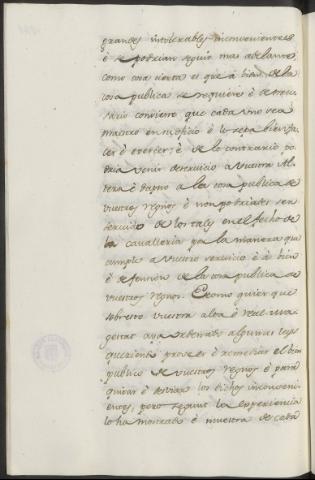 grandes intolerables inconvenientes
é se podrian seguir mas adelante,
como cosa cierta es que á bien de la
cosa publica se requiere é es neces-
sario conviene que cada uno sea
maestro en su oficio é lo sepa bien fa-
cer é exercer, é de lo contrario po-
dria venir deservicio a vuestra Al-
teza é dapno a la cosa publica de
vuestros regnos é non podriades ser
servido de los tales en el fecho de
la cavalleria por la manera que
cumple a vuestro servicio é á bien
é defension de la cosa publica de
vuestros regnos. E como quier que
sobre esto vuestra alta é real ma-
gestat aya ordenado algunas leyes
queriendo proveer é remediar el bien
publico de vuestros regnos é para
quitar é desviar los dichos inconveni-
entes, pero segunt la experiencia
lo ha mostrado é muestra de cada